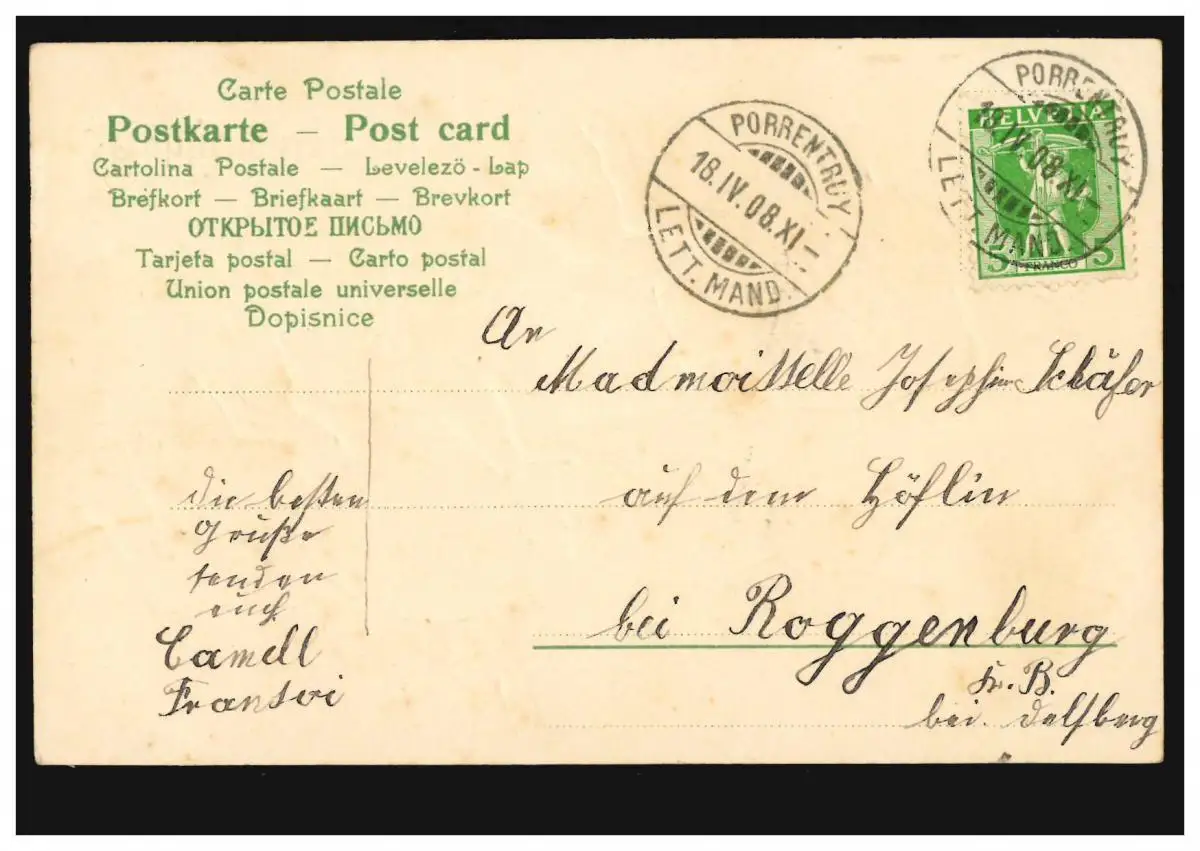 Carte Postale
Postkarte — Post card
Cartolina Postale — Levelező-Lap
Brefkort — Briefkaart — Brevkort
ОТКРЫТОЕ ПИСЬМО
Tarjeta postal — Carto postal
Union postale universelle
Dopisnice
PORRENTRUY
18.IV.08.XI–
LETT. MAND.
PORRENTRUY
18.IV.08.XI–
LETT. MAND.
HELVETIA
5 FRANCO 5
An
Madmoisselle Josephine Schäfer
auf dem Höflin
bei Roggenburg
Kt. B.
bei Delsberg
die besten
Grüße
senden
euch
Camell
Fransoi